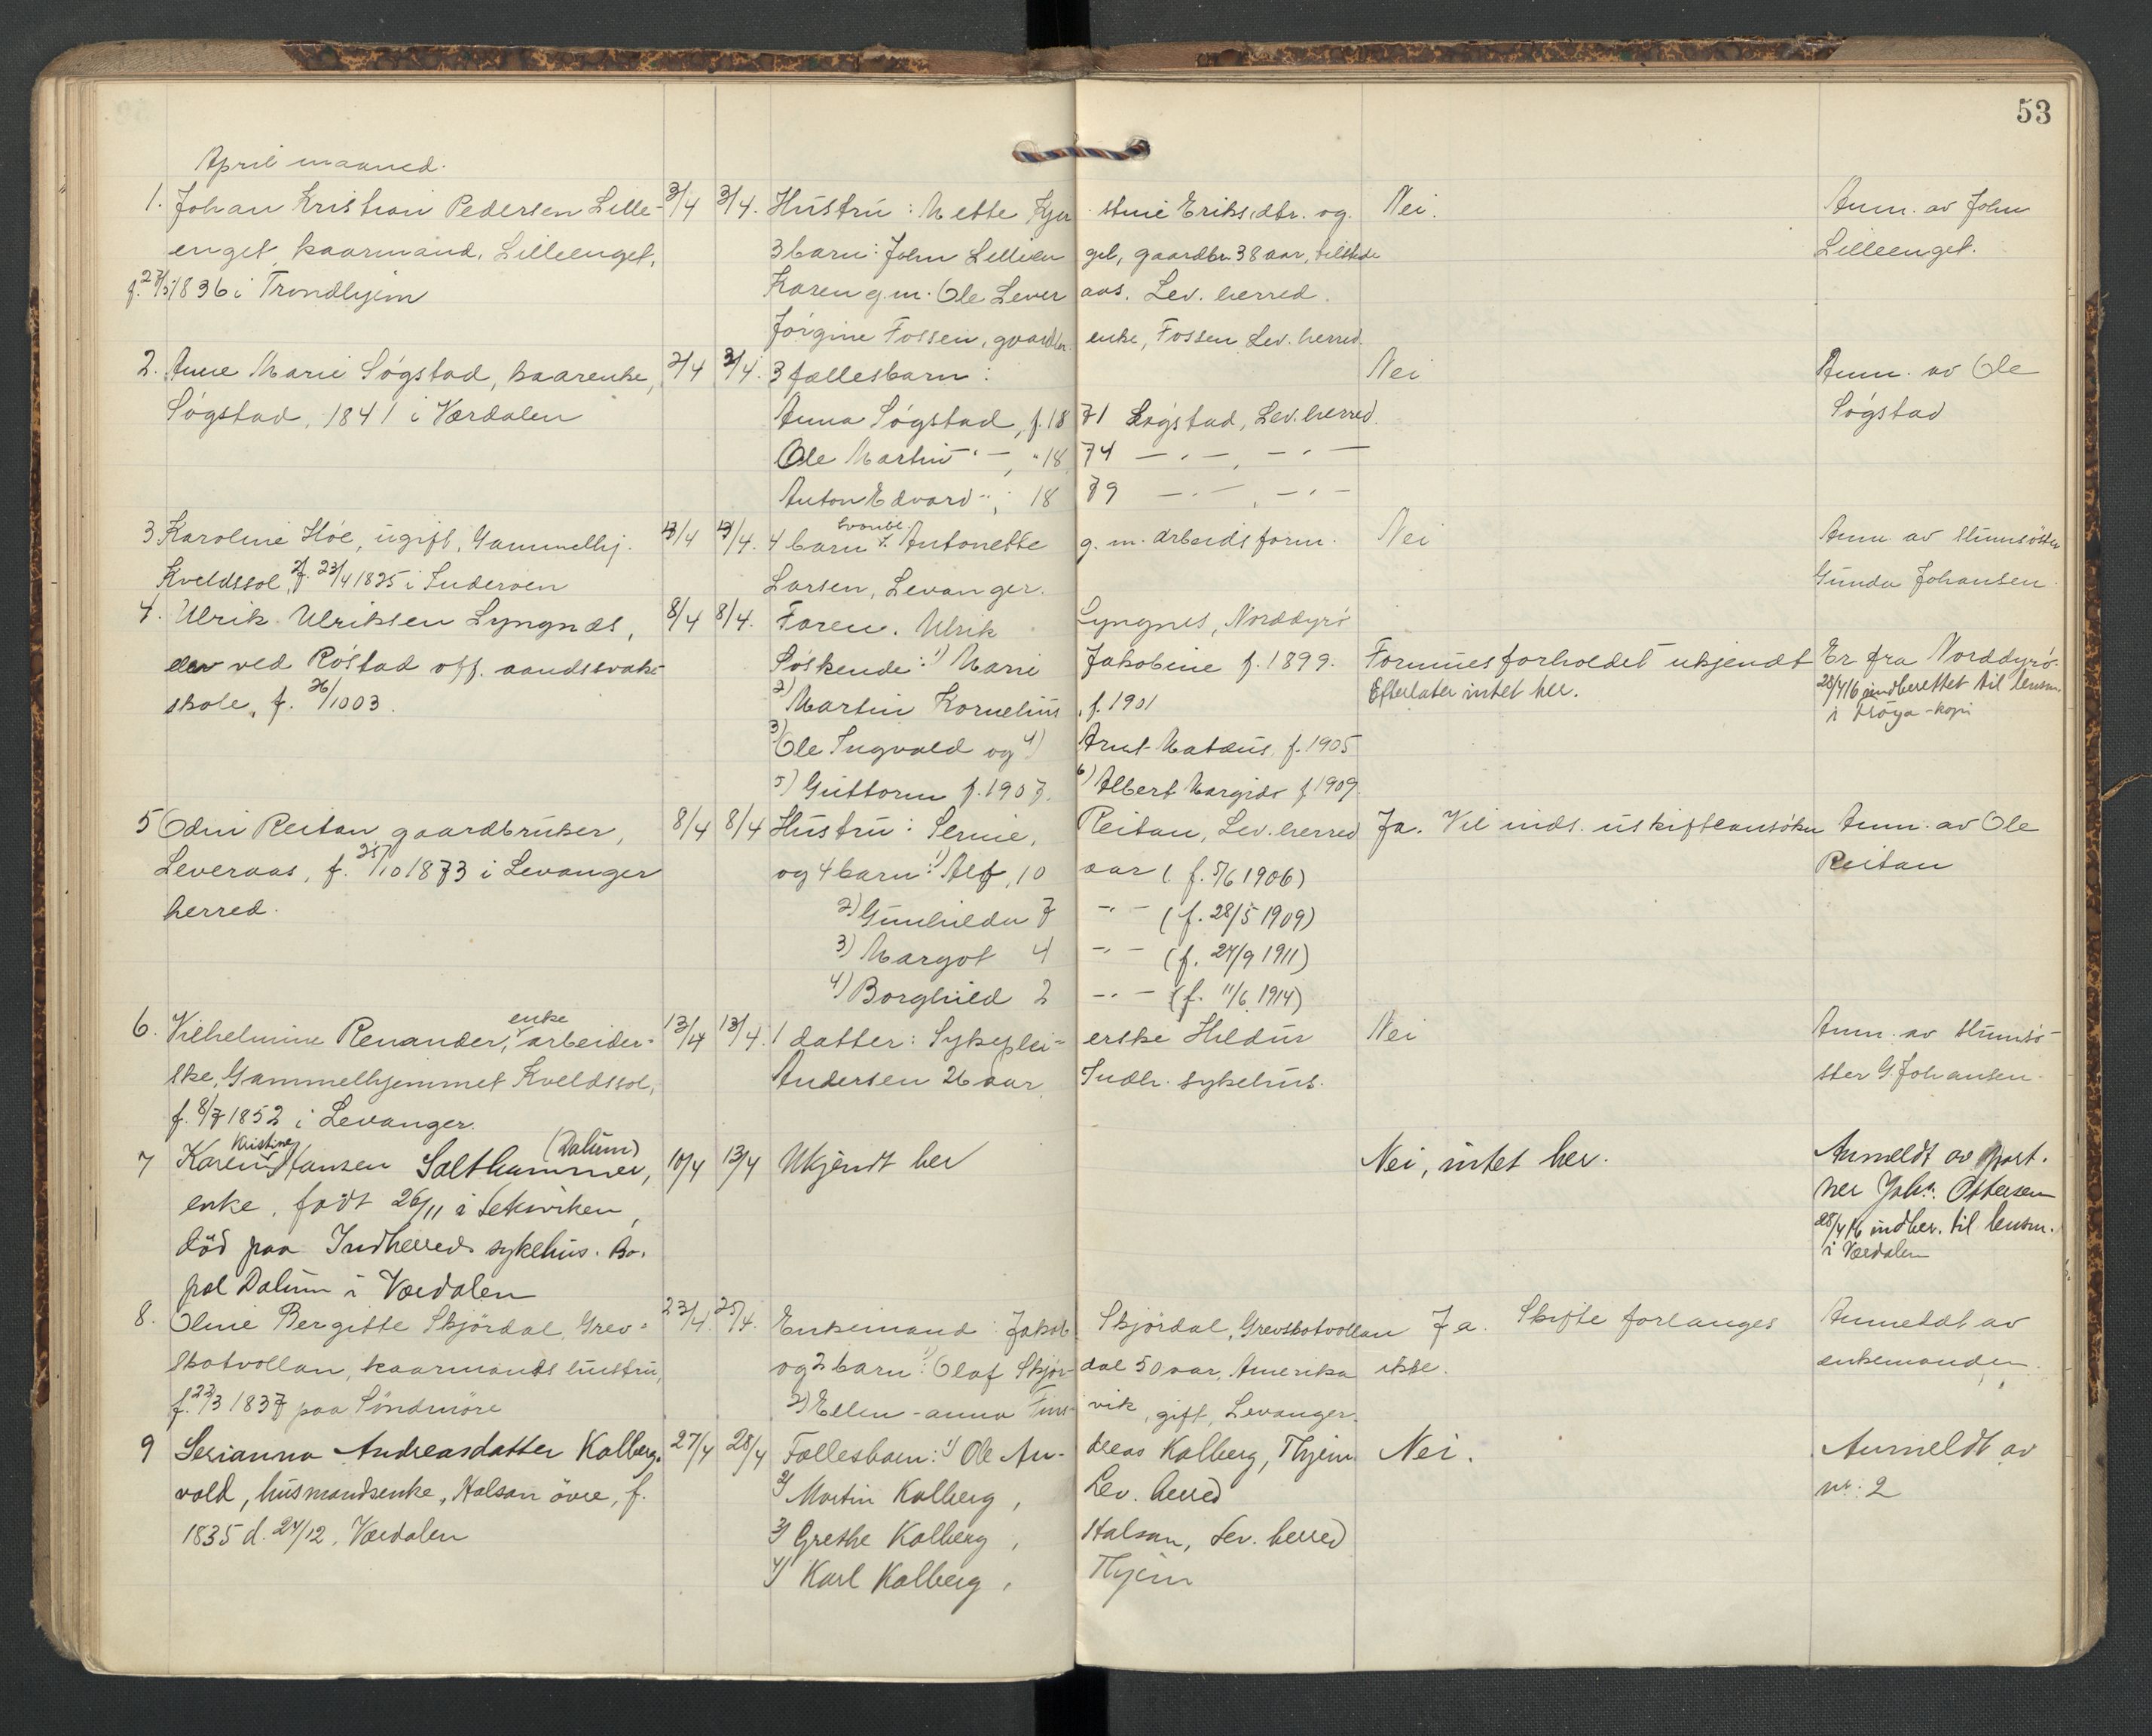 53
April maaned.
1. Johan Kristian Pedersen Lille- 3/4 3/4. Hustru: Mette Kjer stine Eriksdtr. og Nei. Anm. av John
enget, kaarmand, Lilleenget, 3 barn: John Lilleen get, gaardbr. 38 aar, tilstede Lilleenget.
f. 27/5 1836 i Trondhjem Karen g.m. Ole Lever aas. Lev. herred.
Jørgine Fossen, gaardbr. enke, Fossen Lev. herred.
2. Anne Marie Søgstad, kaarenke, 2/4 3/4. 3 fællesbarn: Nei Anm. av Ole
Søgstad, 1841 i Værdalen Anna Søgstad, f. 18 71 Søgstad, Lev. herred. Søgstad
Ole Martin -"-, " 18 74 -"-, -"-
Anton Edvard -"-, 18 79 -"-, -"-
3 Karoline Høe, ugift, Gammelhj. 13/4 13/4. 4 barn Antonette g. m. arbeidsform. Nei Anm. av slumsøster
Kveldssol, f. 23/4 1825 i Inderøen Larsen, Levanger. Gunda Johansen.
4. Ulrik Ulriksen Lyngnes, 8/4 8/4. Faren, Ulrik Lyngnes, Norddyrø
elev ved Røstad off. aandssvake- Søskende: 1) Marie Jakobine f. 1899. Formuesforholdet ukjendt Er fra Norddyrø.
skole, f. 26/1 03. 2) Martin Kornelius, f. 1901 Efterlater intet her. 28/4 16 indberettet til lensm. i Frøya - kopi
3) Ole Ingvald og 4) Arnt Mateus, f. 1905
5) Guttorm f. 1907. 6) Albert Margido f 1909.
5 Odin Reitan, gaardbruker, 8/4 8/4 Hustru: Serine, Reitan, Lev. herred Ja. Vil inds. uskifteansøkn Anm. av Ole
Leveraas, f. 25/10 1873 i Levanger og 4 barn: 1) Alf, 10 aar (f. 5/6 1906) Reitan
herred. 2) Gunhilda 7 -"- (f. 28/5 1909)
3) Margot 4 -"- (f. 24/9 1911)
4) Borghild 2 -"- (f. 11/6 1914)
6. Vilhelmine Renander, enke arbeider- 13/4 13/4. 1 datter: Sykeplei- erske Hildur Nei Anm. av slumsø-
ske, Gammelhjemmet Kveldssol, Andersen 26 aar, Indh. sykehus. ster G. Johansen.
f. 8/7 1852 i Levanger.
7 Karen Kristine Hansen Salthammer, (Dalum) 10/4 13/4 Ukjendt her Nei, intet her. Anmeldt av port-
enke, født 26/11 i Leksviken, ner Johs. Ottersen
død paa Indherreds sykehus. Bo- 28/4 16 indber. til lensm.
pæl Dalum i Værdalen i Værdalen
8. Oline Bergitte Skjørdal, Grev- 23/4. 25/4. Enkemand: Jakob Skjørdal, Grevskotvollan Ja. Skifte forlanges Anmeldt av
skotvollan, kaarmands hustru, og 2 barn: 1) Olaf Skjør- dal 50 aar, Amerika ikke. enkemanden.
f. 22/3 1837 paa Søndmøre 2) Ellen-anna Finn- vik, gift, Levanger.
9 Serianna Andreasdatter Kalberg- 27/4 28/4 Fællesbarn: 1) Ole An- dreas Kalberg, Thjem Nei. Anmeldt av
vald, husmandsenke, Halsan øvre, f. 2) Martin Kalberg, Lev. herred nr. 2
1835 d. 24/12, Værdalen 3) Grethe Kalberg, Halsan, Lev. herred
4) Karl Kalberg, Thjem